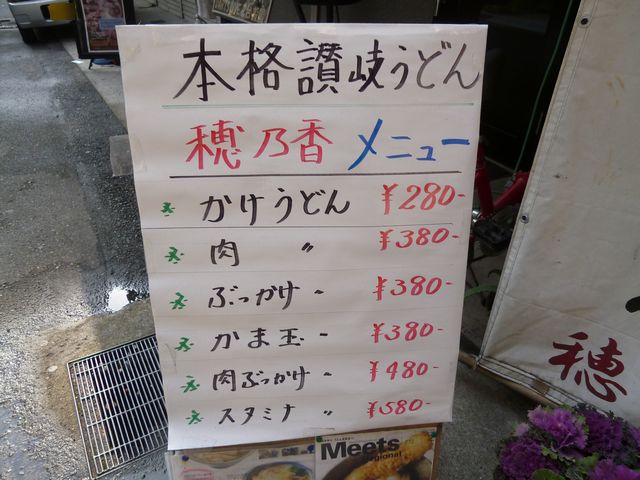 本格讃岐うどん
穂乃香 メニュー
かけうどん ¥280-
肉 〃 ¥380-
ぶっかけ 〃 ¥380-
かま玉 〃 ¥380-
肉ぶっかけ 〃 ¥480-
スタミナ 〃 ¥580-
穂
Meets
Regional